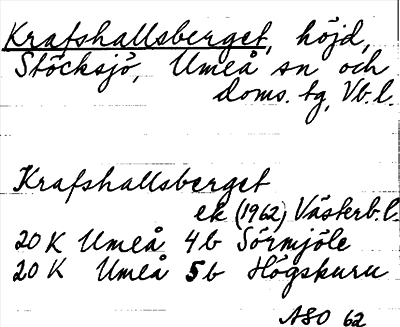 Krafshallsberget, höjd,
Stöcksjö, Umeå sn och
doms. tg, Vb. l.
Krafshallsberget
ek (1962) Västerb. l.
20 K Umeå 4b Sörmjöle
20 K Umeå 5b Högskuru
ASO 62